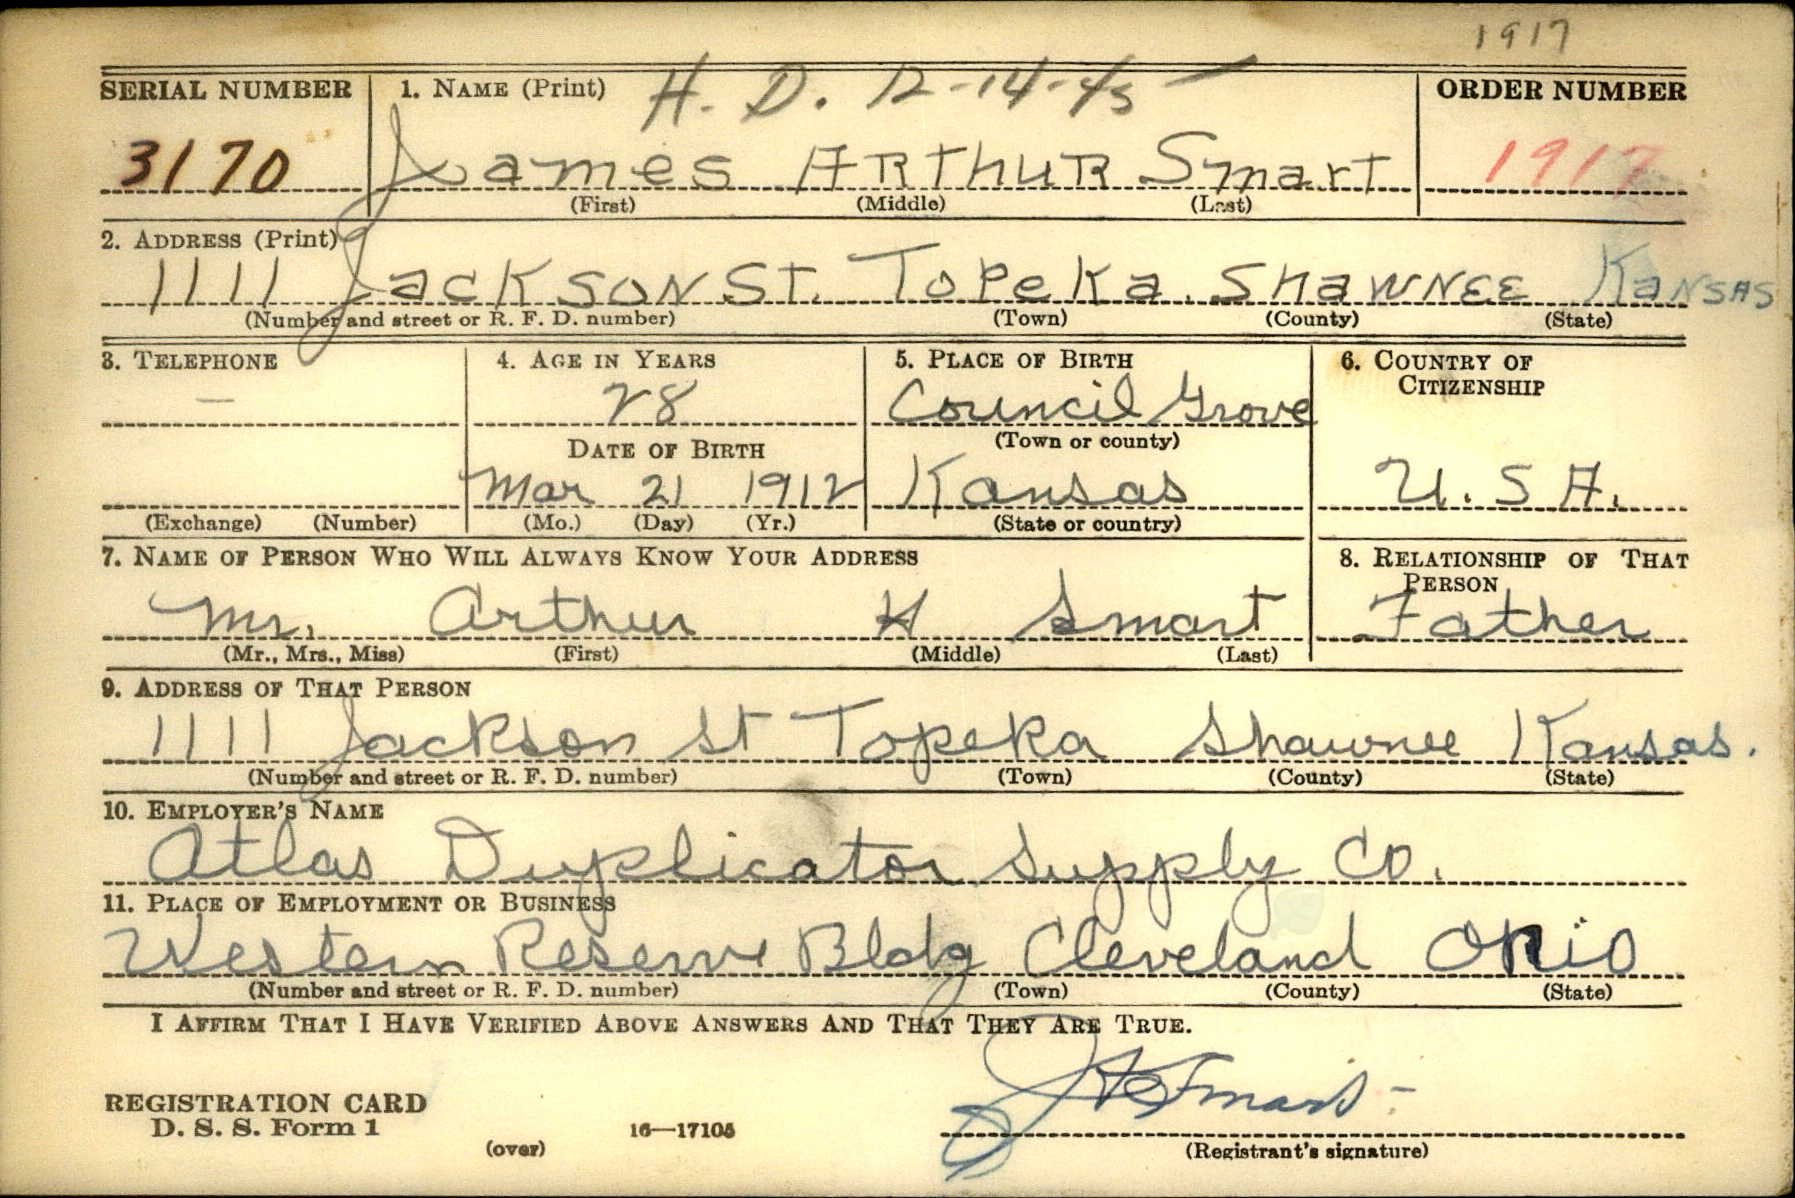 1917
SERIAL NUMBER 1. NAME (Print) H. D. 12-14-45 ORDER NUMBER
3170 James ARThUR Smart 1917
(First) (Middle) (Last)
2. ADDRESS (Print)
1111 Jackson St. Topeka. Shawnee Kansas
(Number and street or R. F. D. number) (Town) (County) (State)
3. TELEPHONE 4. AGE IN YEARS 5. PLACE OF BIRTH 6. COUNTRY OF CITIZENSHIP
— 28 Council Grove
DATE OF BIRTH (Town or county)
Mar 21 1912 Kansas U.S.A.
(Exchange) (Number) (Mo.) (Day) (Yr.) (State or country)
7. NAME OF PERSON WHO WILL ALWAYS KNOW YOUR ADDRESS 8. RELATIONSHIP OF THAT PERSON
Mr. Arthur H Smart Father
(Mr., Mrs., Miss) (First) (Middle) (Last)
9. ADDRESS OF THAT PERSON
1111 Jackson St Topeka Shawnee Kansas.
(Number and street or R. F. D. number) (Town) (County) (State)
10. EMPLOYER'S NAME
Atlas Duplicator Supply Co.
11. PLACE OF EMPLOYMENT OR BUSINESS
Western Reserve Bldg Cleveland Ohio
(Number and street or R. F. D. number) (Town) (County) (State)
I AFFIRM THAT I HAVE VERIFIED ABOVE ANSWERS AND THAT THEY ARE TRUE.
J A Smart
REGISTRATION CARD
D. S. S. Form 1 16—17105
(over) (Registrant's signature)